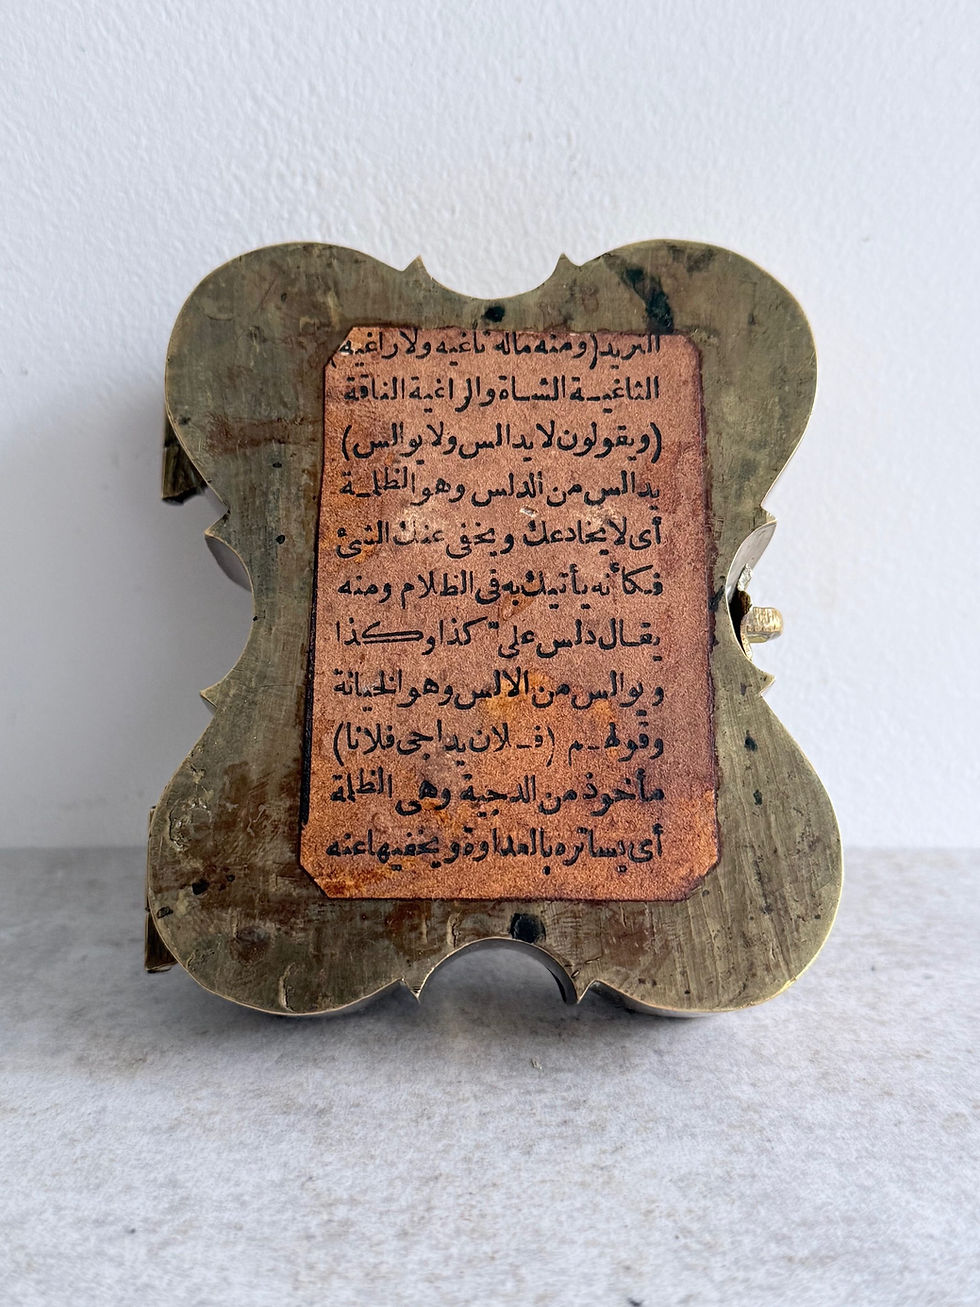 الثريد (ومنه ماله ثاغيه ولا راغيه
الثاغيـة الشـاة والراغية الناقة
(ويقولون لا يدالس ولا يوالس)
يدالس من الدلس وهو الظلمـة
أى لا يخادعك ويخفى عنك الشئ
فكأنه يأتيك به فى الظلام ومنه
يقـال دلس علىّ كذا وكذا
ويوالس من الالس وهو الخيانة
وقولهـم (فـلان يداجى فلانا)
مأخوذ من الدجية وهى الظلمة
أى يساتره بالعداوة ويخفيها عنه